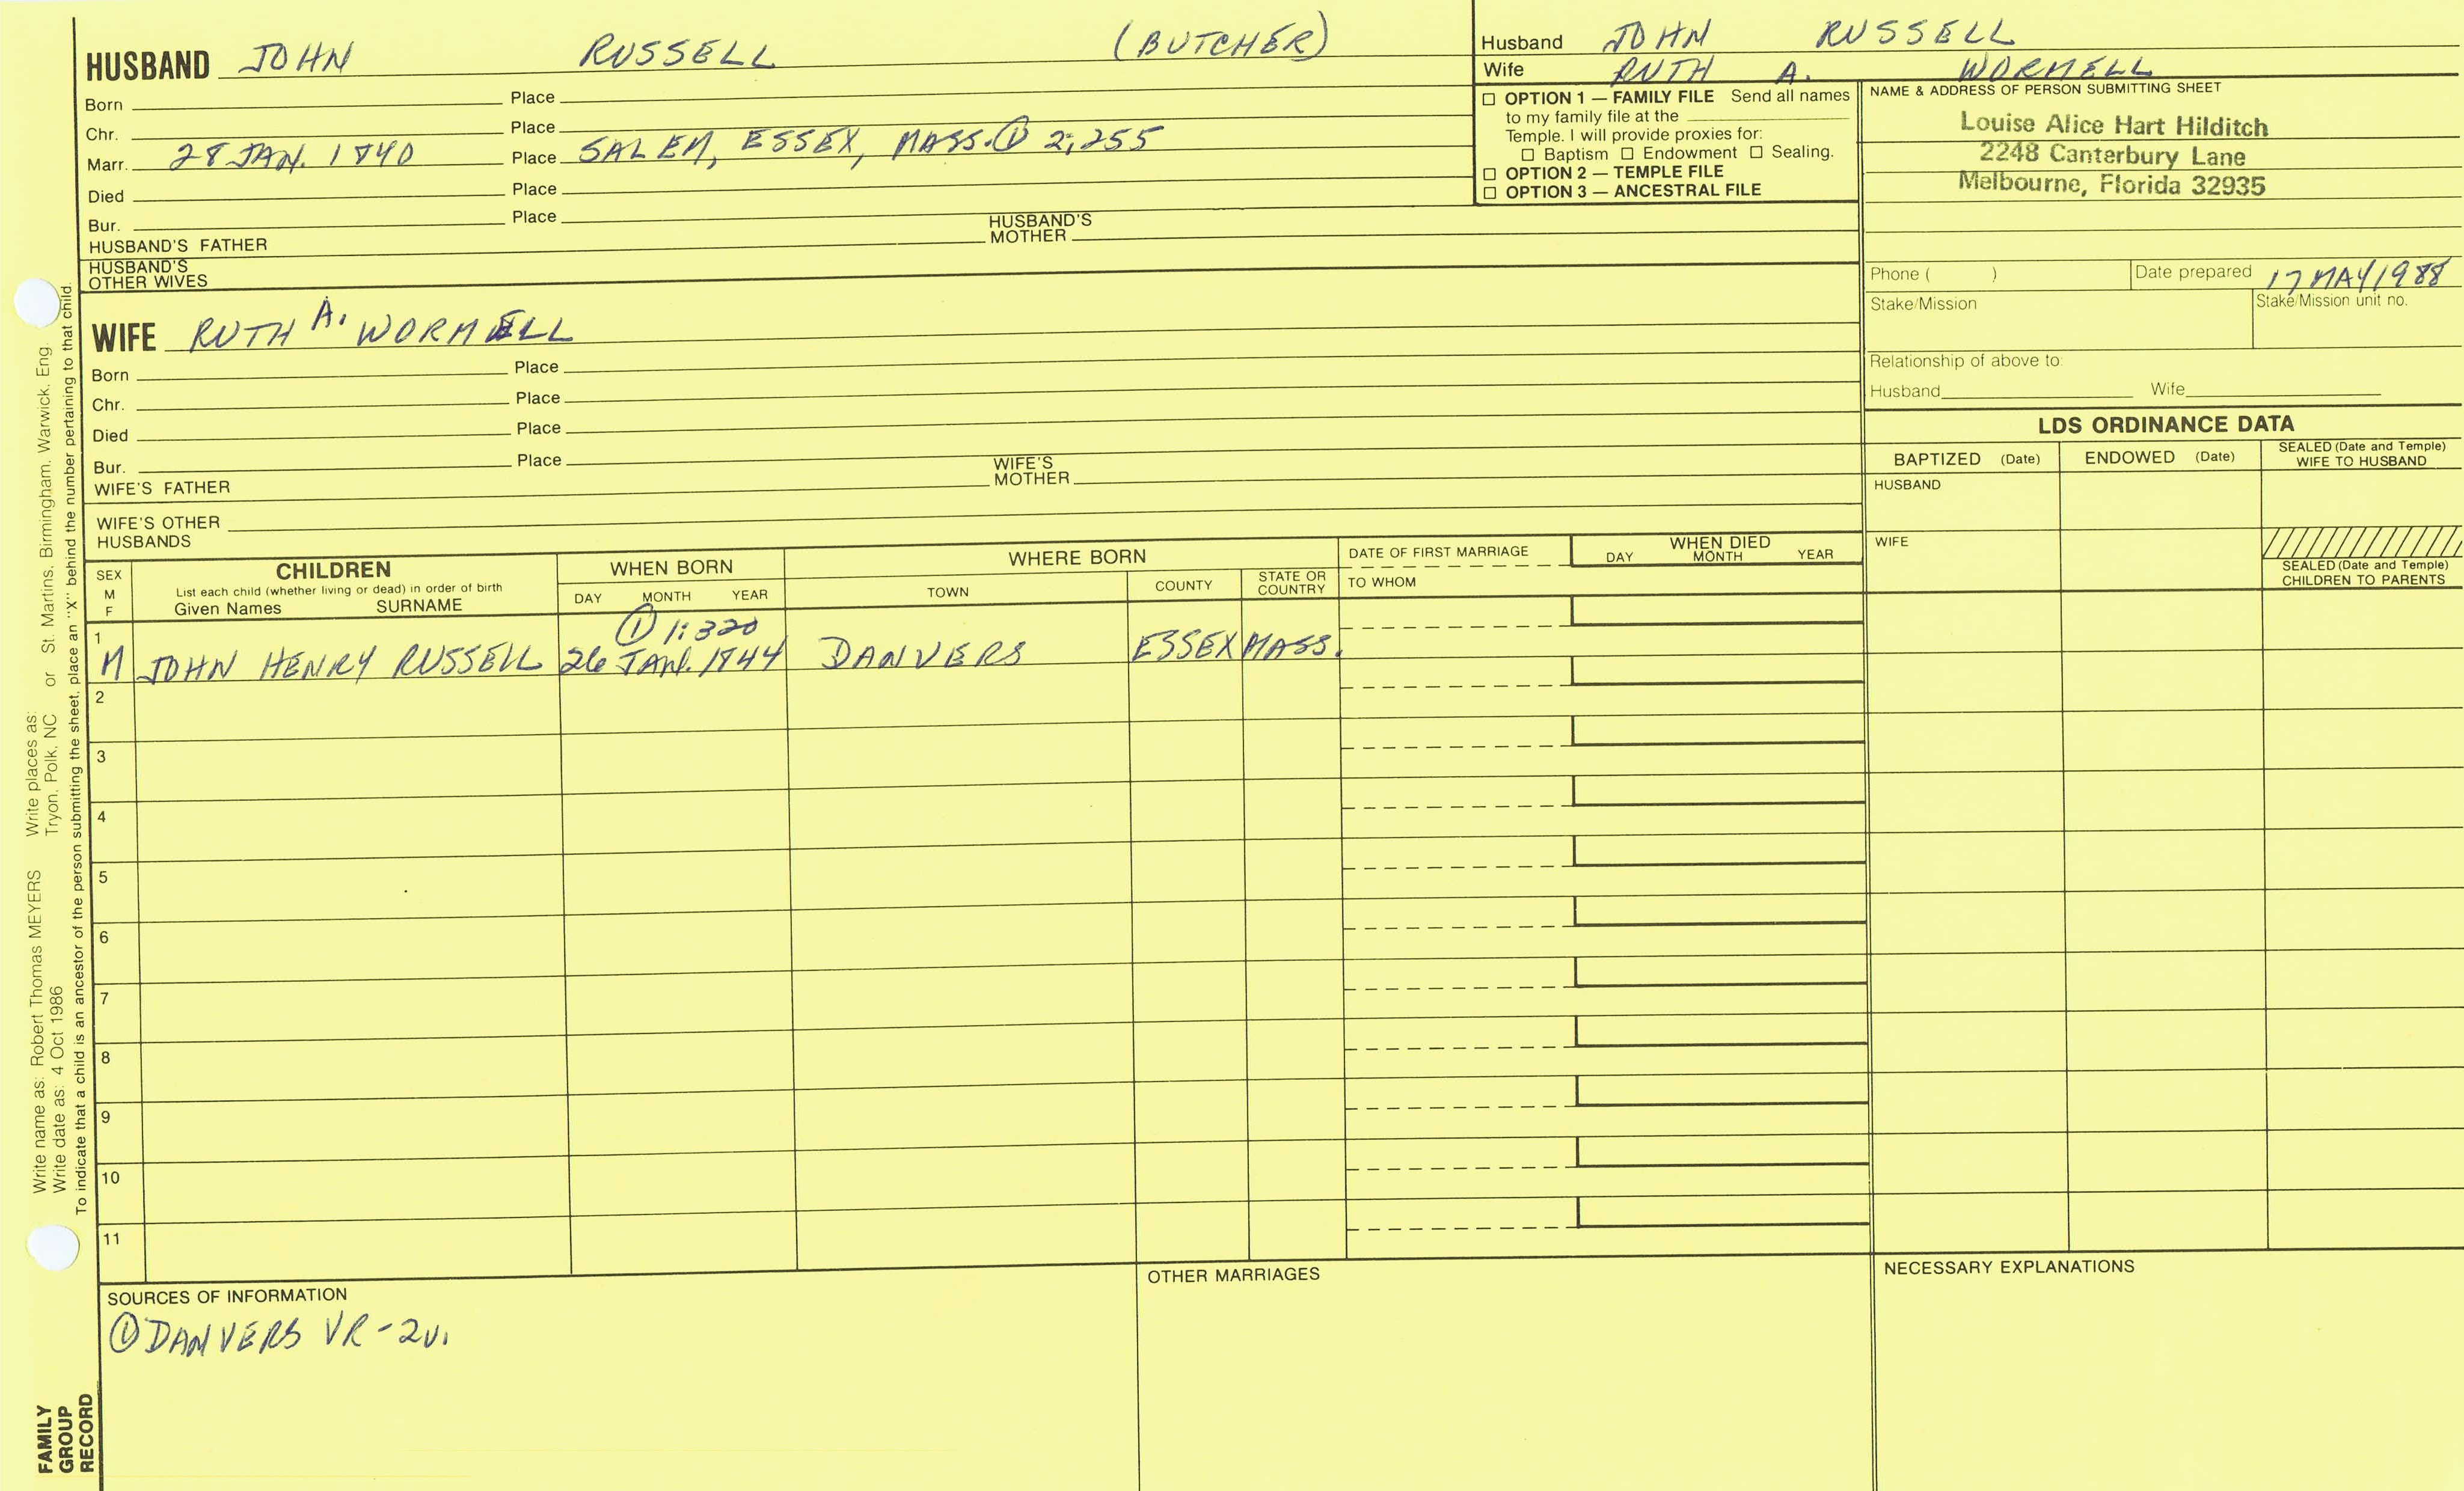 HUSBAND JOHN RUSSELL (BUTCHER)
Born Place
Chr. Place
Marr. 28 JAN. 1840 Place SALEM, ESSEX, MASS. ① 2:255
Died Place
Bur. Place
HUSBAND'S FATHER HUSBAND'S MOTHER
HUSBAND'S OTHER WIVES
WIFE RUTH A. WORMELL
Born Place
Chr. Place
Died Place
Bur. Place
WIFE'S FATHER WIFE'S MOTHER
WIFE'S OTHER HUSBANDS
Husband JOHN RUSSELL
Wife RUTH A. WORMELL
☐ OPTION 1 — FAMILY FILE Send all names
to my family file at the
Temple. I will provide proxies for:
☐ Baptism ☐ Endowment ☐ Sealing.
☐ OPTION 2 — TEMPLE FILE
☐ OPTION 3 — ANCESTRAL FILE
NAME & ADDRESS OF PERSON SUBMITTING SHEET
Louise Alice Hart Hilditch
2248 Canterbury Lane
Melbourne, Florida 32935
Phone ( ) Date prepared 17 MAY 1988
Stake/Mission Stake/Mission unit no.
Relationship of above to:
Husband Wife
LDS ORDINANCE DATA
BAPTIZED (Date) ENDOWED (Date) SEALED (Date and Temple)
WIFE TO HUSBAND
HUSBAND
WIFE
SEALED (Date and Temple)
CHILDREN TO PARENTS
SEX
M
F
CHILDREN
List each child (whether living or dead) in order of birth
Given Names SURNAME
WHEN BORN
DAY MONTH YEAR
WHERE BORN
TOWN COUNTY STATE OR COUNTRY
DATE OF FIRST MARRIAGE
TO WHOM
WHEN DIED
DAY MONTH YEAR
① 1:320
1
M JOHN HENRY RUSSELL 26 JAN. 1844 DANVERS ESSEX MASS.
2
3
4
5
6
7
8
9
10
11
SOURCES OF INFORMATION
① DANVERS VR - 2v.
OTHER MARRIAGES
NECESSARY EXPLANATIONS
Write name as: Robert Thomas MEYERS Write places as: St. Martins, Birmingham, Warwick, Eng.
Write date as: 4 Oct 1986 Tryon, Polk, NC or
To indicate that a child is an ancestor of the person submitting the sheet, place an "X" behind the number pertaining to that child.
FAMILY
GROUP
RECORD